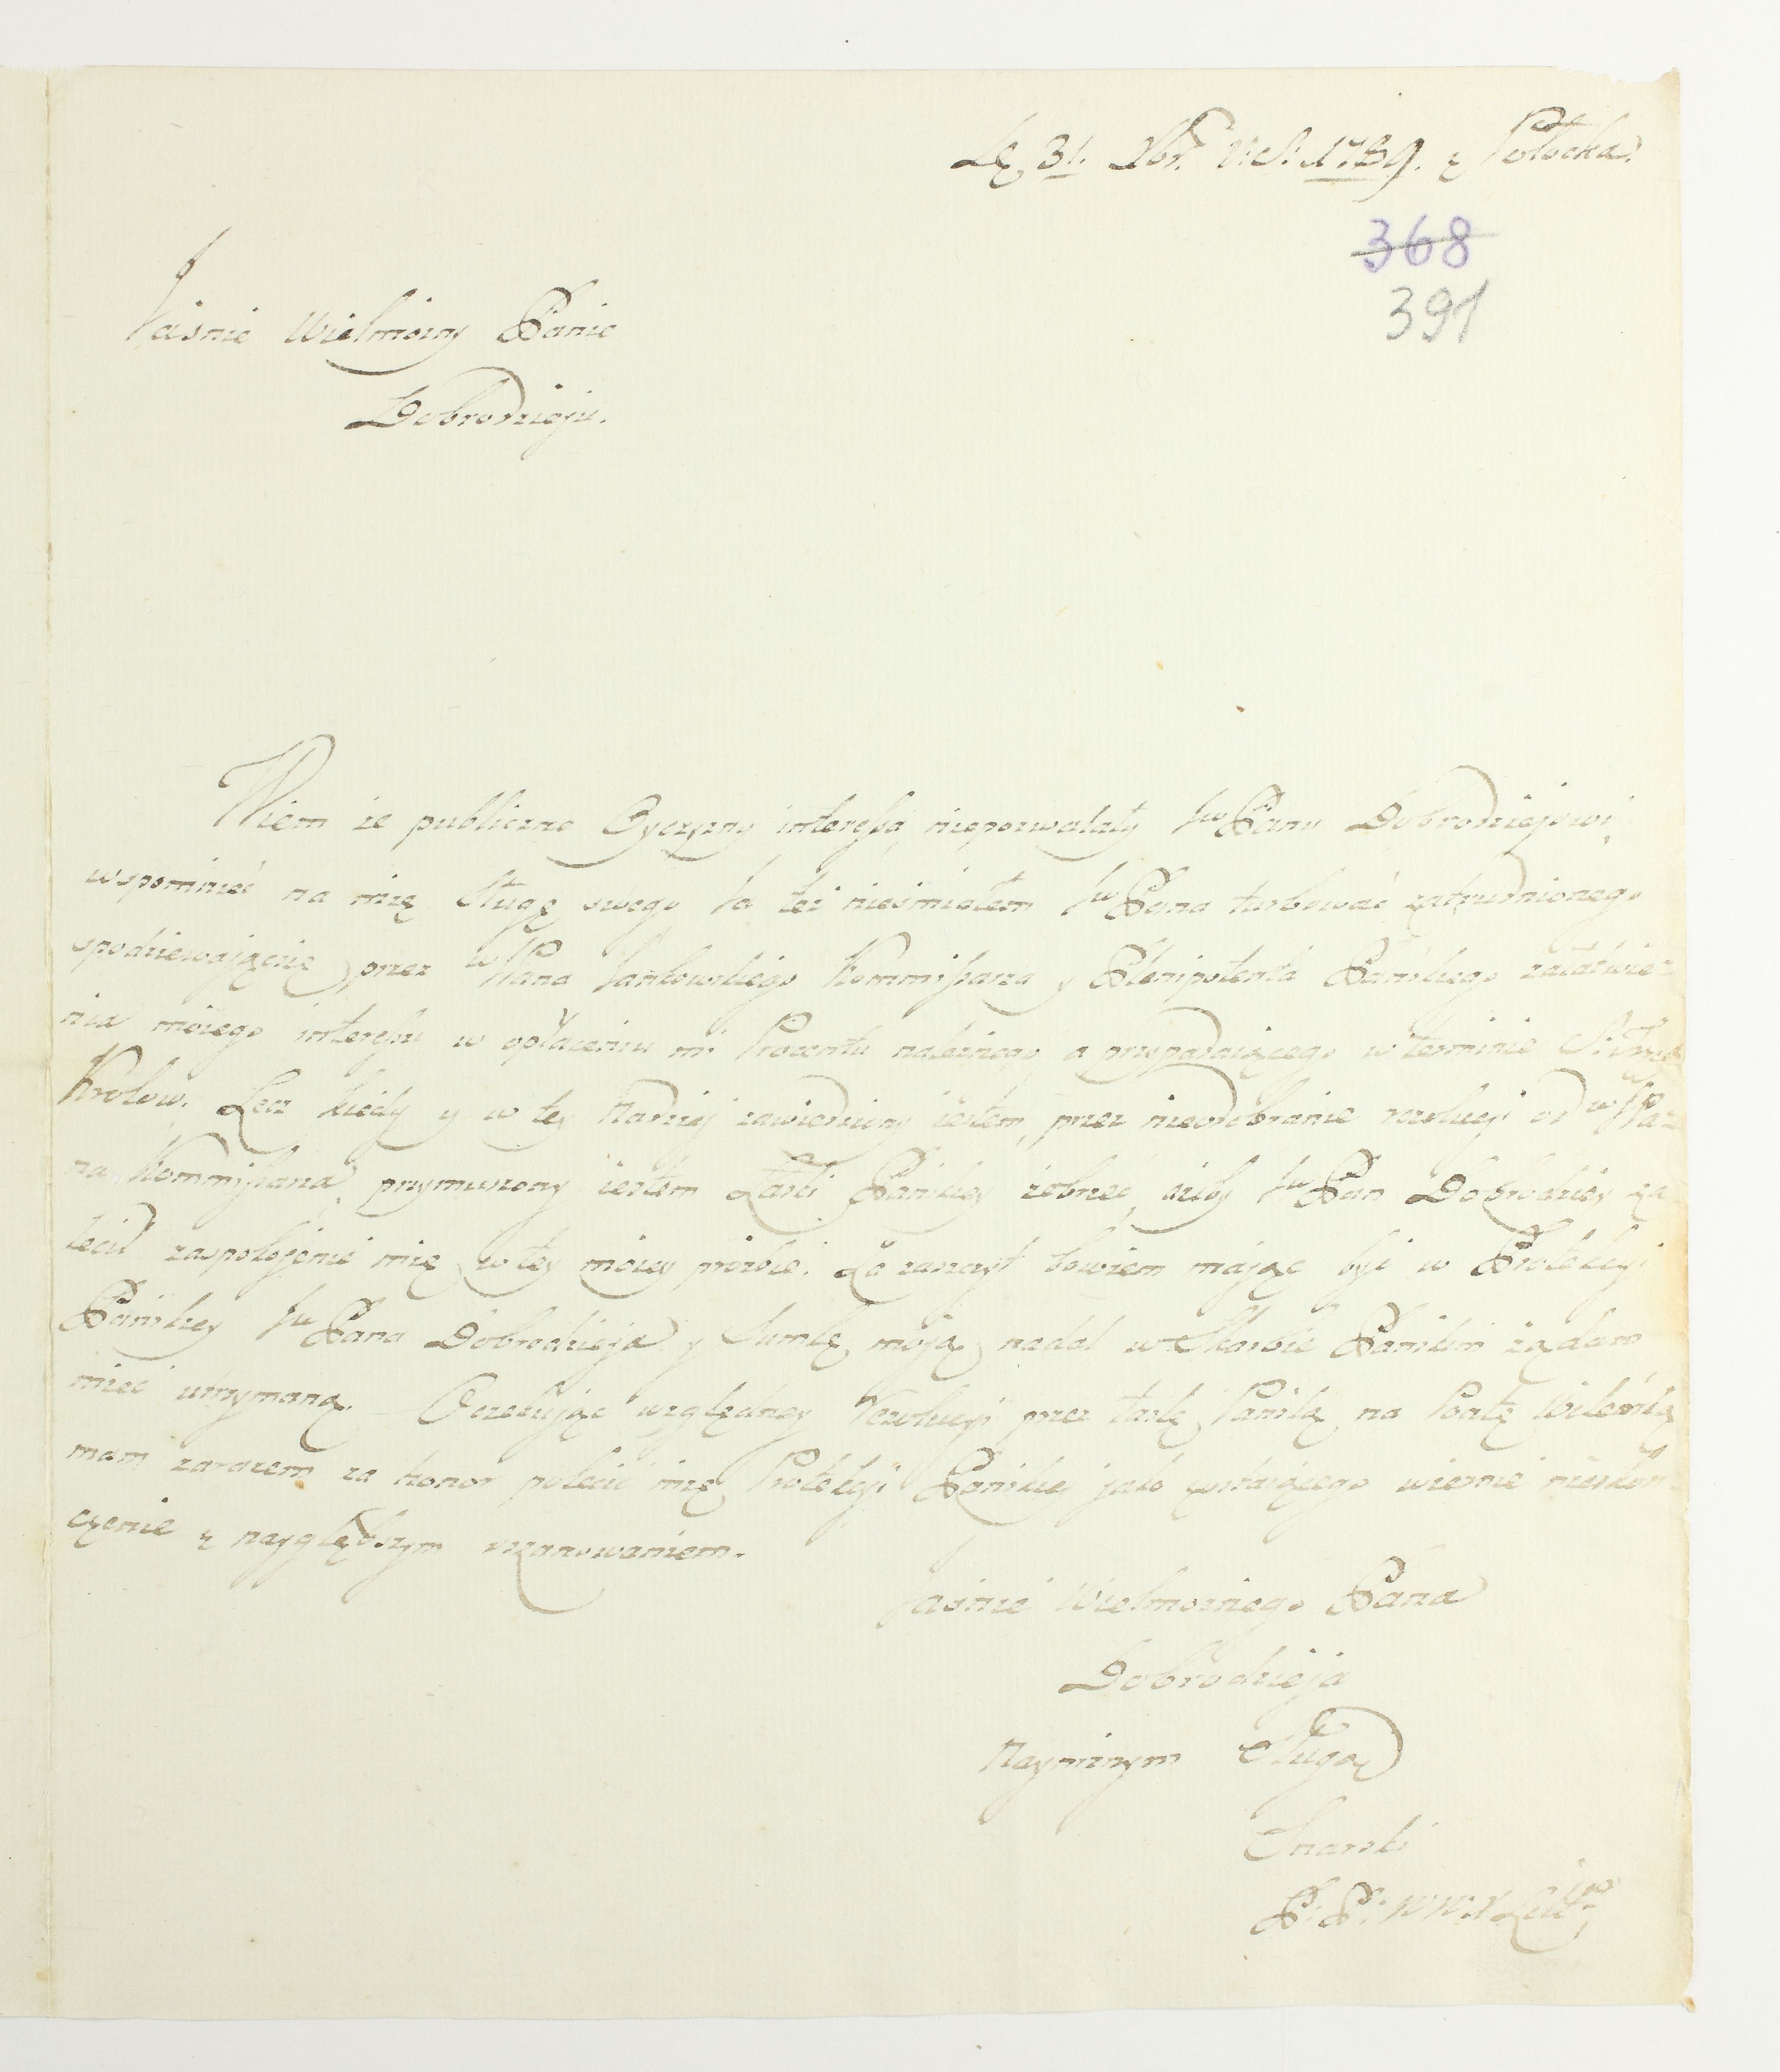 31. Xbr. 1789. z Połocka.
368
391
Jasnie Wielmożny Panie
Dobrodzieju.
Wiem że publiczne Oyczyzny interessa, niepozwalały Jw Panu Dobrodziejowi,
wspomnieć na mię Sługę swego Ja też nieśmiałem Jw Pana turbować zatrudnionego
spodziewającsię przez W Pana Jankowskiego Kommissarza y Plenipotenta Pańskiego załatwie-
nia moiego interessu w opłaceniu mi Procentu należnego a przypadaiącego w terminie S:
Krolow. Lecz kiedy y w tey Nadziej zawiedziony iestem, przez nieodebranie rezolucyi od W Pa-
na Kommissarza, przymuszony iestem Łaski Pańskiey żebrzeć, ażeby Jw Pan Dobrodziey za
lecił zaspokojenie mię w tey moiey prozbie. Za zaszczyt bowiem mając byi w Protekcyi
Pańskiey Jw Pana Dobrodzieja y Summę moją nadal w Skarbie Pańskim żądam
mieć utrzymaną. Oczekując względney Rezolucyi przez łaskę Pańską na Pocztę Wileńską
mam zarazem za honor polecić mię Protekcyi Pańskiey jako zostaiącego wiernie nieskoń-
czenie z nayglębszym uszanowaniem.
Jaśnie Wielmożnego Pana
Dobrodzieja
Nayniższym Sługą
Snarski